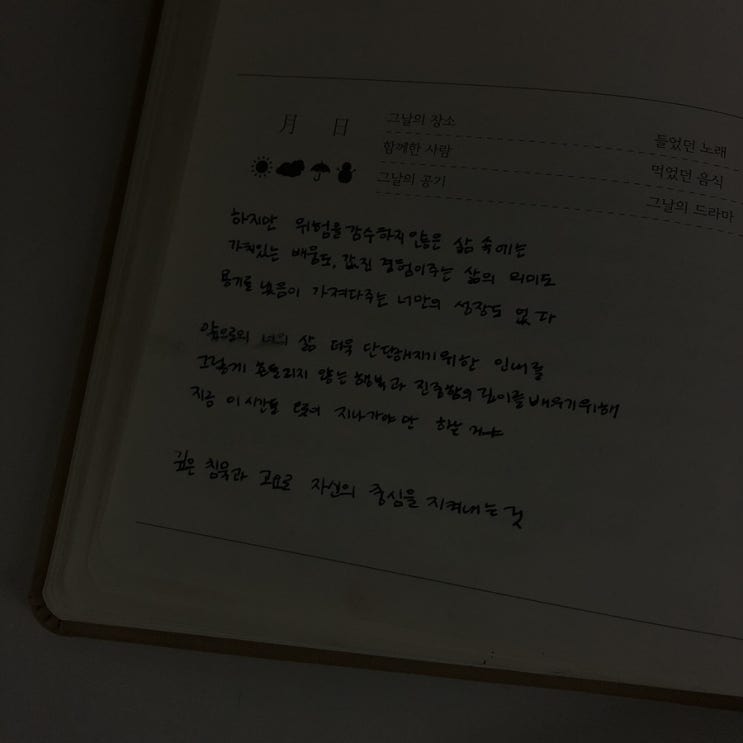 月 日
그날의 장소 들었던 노래
함께한 사람 먹었던 음식
그날의 공기 그날의 드라마
하지만 위험을 감수하지 않은 삶 속에는
가치있는 배움도, 값진 경험이주는 삶의 의미도
용기를 냈음이 가져다주는 너만의 성장도 없다
앞으로의 너의 삶 더욱 단단해지기위한 인내를
그렇게 흐트러지 않는 행복과 진중함의 깊이를 배우기위해
지금 이 시간도 오롯이 지나가야만 하는 거야
깊은 침묵과 고요로 자신의 중심을 지켜내는 것